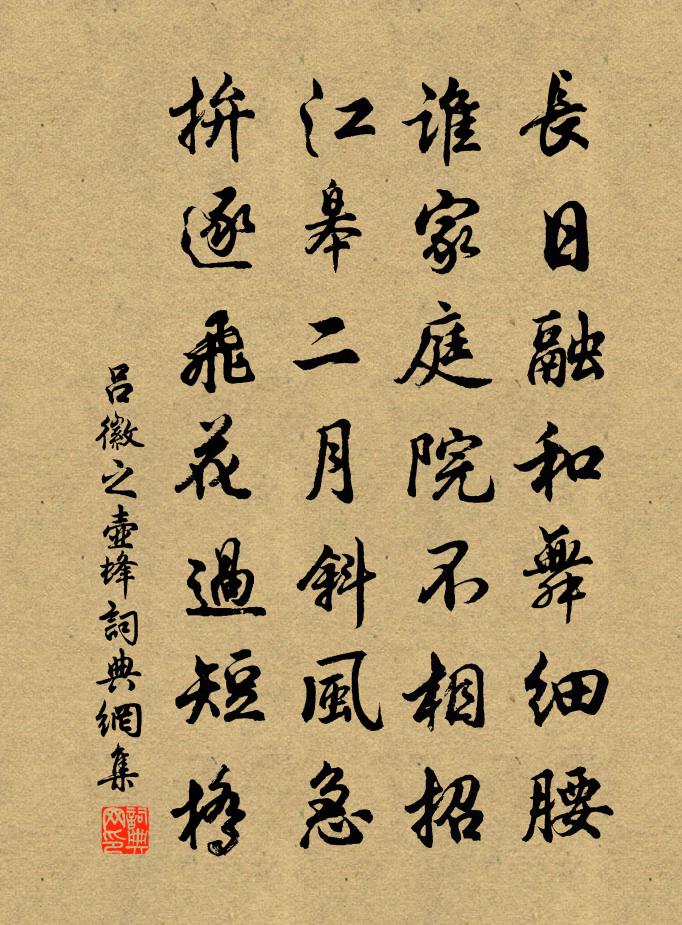 長日融和舞細腰
誰家庭院不相招
江皋二月斜風急
拚逐飛花過短橋
呂徽之壺烽詞典網集
詞典網印